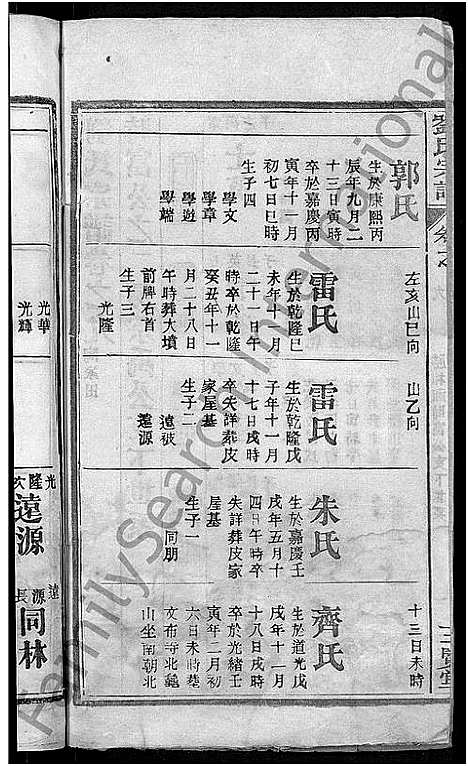 劉氏宗譜
卷之
左亥山巳向
山乙向
十三日未時
郭氏
生於康熙丙
辰年九月二
十三日寅時
卒於嘉慶丙
寅年十一月
初七日巳時
生子四
學文
學章
學遊
學端
雷氏
生於乾隆巳
未年十月
二十一日午
時卒於乾隆
癸丑年十一
月二十八日
午時葬大墳
前牌右首
生子三
光隆
光華
光輝
雷氏
生於乾隆戊
子年十一月
十七日戌時
卒失詳葬皮
家屋基
生子二
遠被
遠源
光隆次
遠源
朱氏
生於嘉慶壬
戌年五月十
四日午時卒
失詳葬皮家
屋基
生子一
同朋
遠源長
同林
齊氏
生於道光戊
戌年十一月
十八日戌時
卒於光緒壬
寅年二月初
六日未時葬
文布寺北龜
山坐南朝北
FamilySearch International